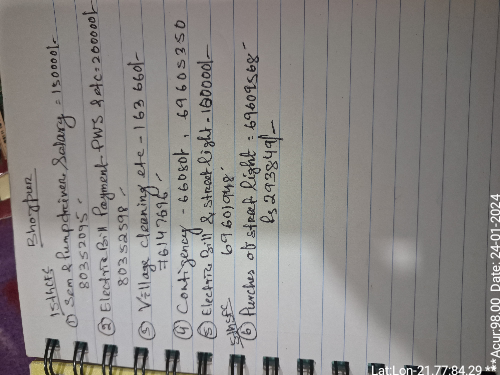 Bhojpur
15thCFC
① Sam & Pumpdriver Salary = 150000/-
80352095
② Electric Bill Payment-PWS & etc = 200000/-
80352598
③ Village cleaning etc - 163660/-
76147696
④ Contigency - 66080/- , 69605350
⑤ Electric Bill & street light - 100000/-
69601948
5thSFC
⑥ Purches of street light : 69609568
Rs 293849/-
Lat:Lon-21.77:84.29 ** Acur:98.00 Date: 24-01-2024 **